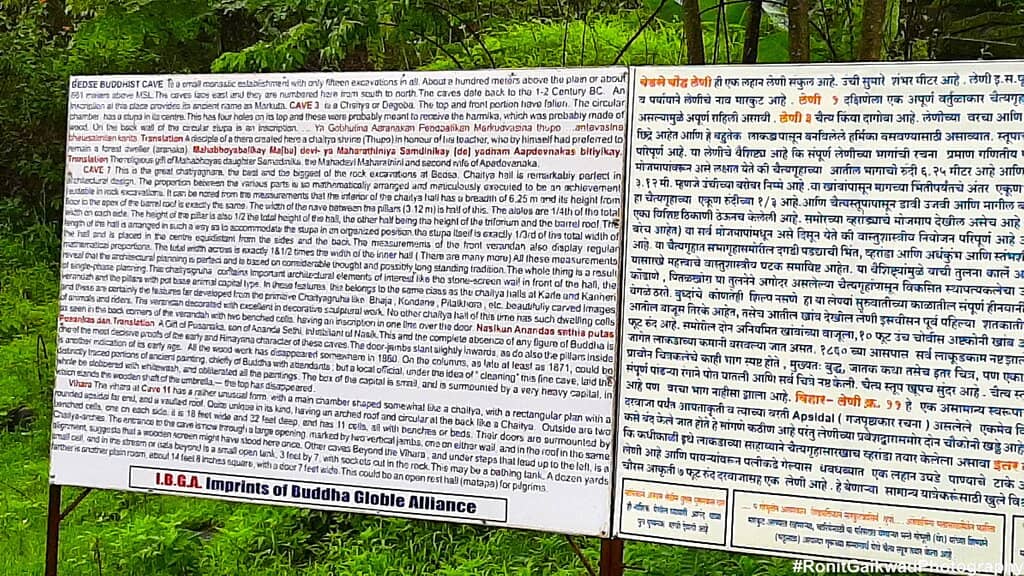 GEDSE BUDDHIST CAVE To a small monastic establishment with only fifteen excavations in all. About a hundred meters above the plain or about
681 meters above MSL. The caves face east and they are numbered here from south to north. The caves date back to the 1-2 Century BC. An
inscription at this place provides its ancient name as Markuta. CAVE 3 to a Chaitya or Degoba. The top and front portion have fallen. The circular
chamber has a stupa in its centre. This has four holes on its top and these were probably meant to receive the harmika, which was probably made of
wood. On the back wall of the circular stupa is an inscription. ... Ya Gobhutina Translation A disciple of a them created here a chaitya shrine (Thupo) in honour of his teacher, who by himself had
remain a forest dweller (aranaka). Mahabhoyabalikay Ma[ha] devi- ya Maharathiniya Samdinikay [de] yadinam Aapdevnakas bitiyikay.
Translation The religious gift of Mahabhoyas daughter Samadinika, the Mahadevi Maharathini and second wife of Apadovanaka.
CAVE 7 This is the great chaityaghara, the best and the biggest of the rock excavations at Bedsa. Chaitya hall is remarkably perfect in
architectural design. The proportion between the various parts is so mathematically arranged and meticulously executed to be an achievement
in rock excavations. It can be noted from the measurements that the interior of the chaitya hall has a breadth of 6.25 m and its height from
floor to the apex of the barrel roof is exactly the same. The width of the nave between the pillars (3.12 m) is half of this. The aisles are 1/4th of the total
width on each side. The height of the pillar is also 1/2 the total height of the hall, the other half being the height of the triforium and the barrel roof. The
length of the hall is arranged in such a way as to accommodate the stupa in an organized position. the stupa itself is exactly 1/3rd of the total width of
the hall and is placed in the centre equidistant from the sides and the back. The measurements of the front verandah also display regular
mathematical proportions. The total width across is exactly 1&1/2 times the width of the inner hall ( There are many more) All these measurements
reveal that the architectural planning is perfect and is based on considerable thought and possibly long standing tradition. The whole thing is a result
of single-phase planning. This chaityagruha contains important architectural elements of interest like the stone-screen wall in front of the hall, the
verandah and the pillars with pot base animal capital type. In these features, this belongs to the same class as the chaitya halls at Karle and Kanheri
and these are certainly the features far developed from the primitive Chaityagruha like Bhaja, Kondane, Pitalkhora, etc. beautifully carved images
of animals and riders. The verandah decorated with excellent in decorative sculptural work. No other chaitya hall of this time has such dwelling cells
as seen in the back corners of the verandah with two benched cells, having an inscription in one line over the door. Nasikun Anandas sinthis putas
Pusanikas dan. Translation A Gift of Pusanaka, son of Ananda Sethi, inhabitant of Nasik. This and the complete absence of any figure of Buddha is
one of the most decisive proofs of the early and Hinayana character of these caves. The door-jambs slant slighly inwards, as do also the pillars inside
is another indication of its early age. All the wood work has disappeared somewhere in 1860. On the columns, as late at least as 1871, could be
distinctly traced portions of ancient painting, chiefly of Buddha with attendants ; but a local official, under the idea of " cleaning" this fine cave, laid the
whole be dilivered with whitewash, and obliterated all the paintings. The box of the capital is small, and is surmounted by a very heavy capital, in
which stands the wooden shaft of the umbrella,— the top has disappeared.
Vihara The vihara at Cave 11 has a rather unusual form, with a main chamber shaped somewhat like a chaitya, with a rectangular plan with a
rounded apsidal far end, and a vaulted roof. Quite unique in its kind, having an arched roof and circular at the back like a Chaitya. Outside are two
benched cells, one on each side, it is 18 feet wide and 32 feet deep, and has 11 cells, all with benches or beds. Their doors are surmounted by
Chaitya-arches. The entrance to the cave is now through a large opening, marked by two vertical jambs, one on either wall, and in the roof in the same
alignment, suggests that a wooden screen might have stood here once. Other caves Beyond the Vihara , and under steps that lead up to the left, is a
small cell, and in the stream or data beyond is a small open tank, 3 feet by 7, with sockets cut in the rock. This may be a bathing tank. A dozen yards
farther is another plain room, about 14 feet 8 inches square, with a door 7 feet wide. This could be an open rest hall (matapa) for pilgrims.
I.B.G.A. Imprints of Buddha Globle Alliance
बेडसे बौद्ध लेणी ही एक लहान लेणी संकुल आहे. उंची सुमारे शंभर मीटर आहे. लेणी इ.स.
व पर्यायाने लेणीचे नाव मारकुट आहे. लेणी १ दक्षिणेला एक अपूर्ण वर्तुळाकार
असल्यामुळे अपूर्ण राहिली असावी. लेणी ३ चैत्य किंवा दागोबा आहे. लेणीच्या वरचा आणि
छिद्रे आहेत आणि हे बहुतेक लाकडापासून बनविलेले हर्मिका बसवण्यासाठी असाव्यात.
परिपूर्ण आहे. या लेणीचे वैशिष्ट्य आहे कि संपूर्ण लेणीच्या भागांची रचना प्रमाण गणितीय
मोजमापकावरून असे लक्षात येते की चैत्यगृहाच्या आतील भागाची रुंदी ६.२५ मीटर आणि
३.१२ मी. म्हणजे उंचीच्या बरोबर निम्मे आहे. या खांबापासून मागच्या भिंतीपर्यतचे अंतर एकूण
हा चैत्यगृहाच्या एकूण रुंदीच्या १/३ आहे.आणि चैत्यस्तूपापासून डावी उजवी आणि मागील
एक विशिष्ट ठिकाणी ठेऊनच केलेली आहे. समोरच्या व्हरांड्याचे मोजमाप देखील असेच आहे
बरेच आहेत) या सर्व मोजमापांमधून असे दिसून येते की वास्तुशास्त्रीय नियोजन परिपूर्ण आहे
आहे. या चैत्यगृहात सभागृहासमोरील दगडी पडद्याची भिंत, व्हरांडा आणि
यासारखे महत्वाचे वास्तुशास्त्रीय घटक समाविष्ट आहेत. या वैशिष्ट्यांमुळे याची तुलना कार्ले
कोंडाणे, पितळखोरा या तुलनेने अगोदर असलेल्या चैत्यगृहांपासून विकसित स्थापत्यकलेचा
वेगळे ठरते. बुद्धांचे कोणतेही शिल्प नसणे हा या लेण्यां सुरुवातीच्या काळातील
आतील बाजूस तिरके आहेत, तसेच आतील खांब देखील लेणी इसवीसन पूर्व पहिल्या शतकातील
फूट रुंद आहे. समोरील दोन अनियमित खांबांच्या मधून,१० फूट उंच
जागेत लाकडाच्या कमानी बसवल्या जात असत. १८६० च्या आसपास सर्व लाकूडकाम
प्राचीन चित्रकलेचे काही भाग स्पष्ट होते , मुख्यतः बुद्ध, जातक कथा तसेच इतर चित्र, पण
संपूर्ण पांढऱ्या रंगाने पोत घातली आणि सर्व चित्रे नष्ट केली. चैत्य स्तूप खूपच सुंदर आहे.
आहे पण वरचा भाग नाहीसा झाला आहे. विहार- लेणी क्र. ११ हे एक असामान्य
दरवाजा पर्यंत आयताकृती व त्याच्या वरती Apsidal ( गजपृष्ठाकार रचना ) असलेले एकमेव
कसे बंद केले जात होते हे सांगणे कठीण आहे परंतु लेणीच्या प्रवेशद्वारासमोर दोन चौकोनी खड्डे
कि कधीकाळी इथे लाकडाच्या साहाय्याने चैत्यगृहासारखाच व्हरांडा तयार केलेला असावा इतर
लेणी आणि पायऱ्यांवरून पलीकडे गेल्यास धबधब्यात एक लहान उघडे पाण्याचे टाके
चौरस आकृती ७ फूट रुंद दरवाजासह एक लेणी आहे . हे येणाऱ्या सामान्य यात्रेकरूंसाठी खुले
#RonitGaikwadPhotography